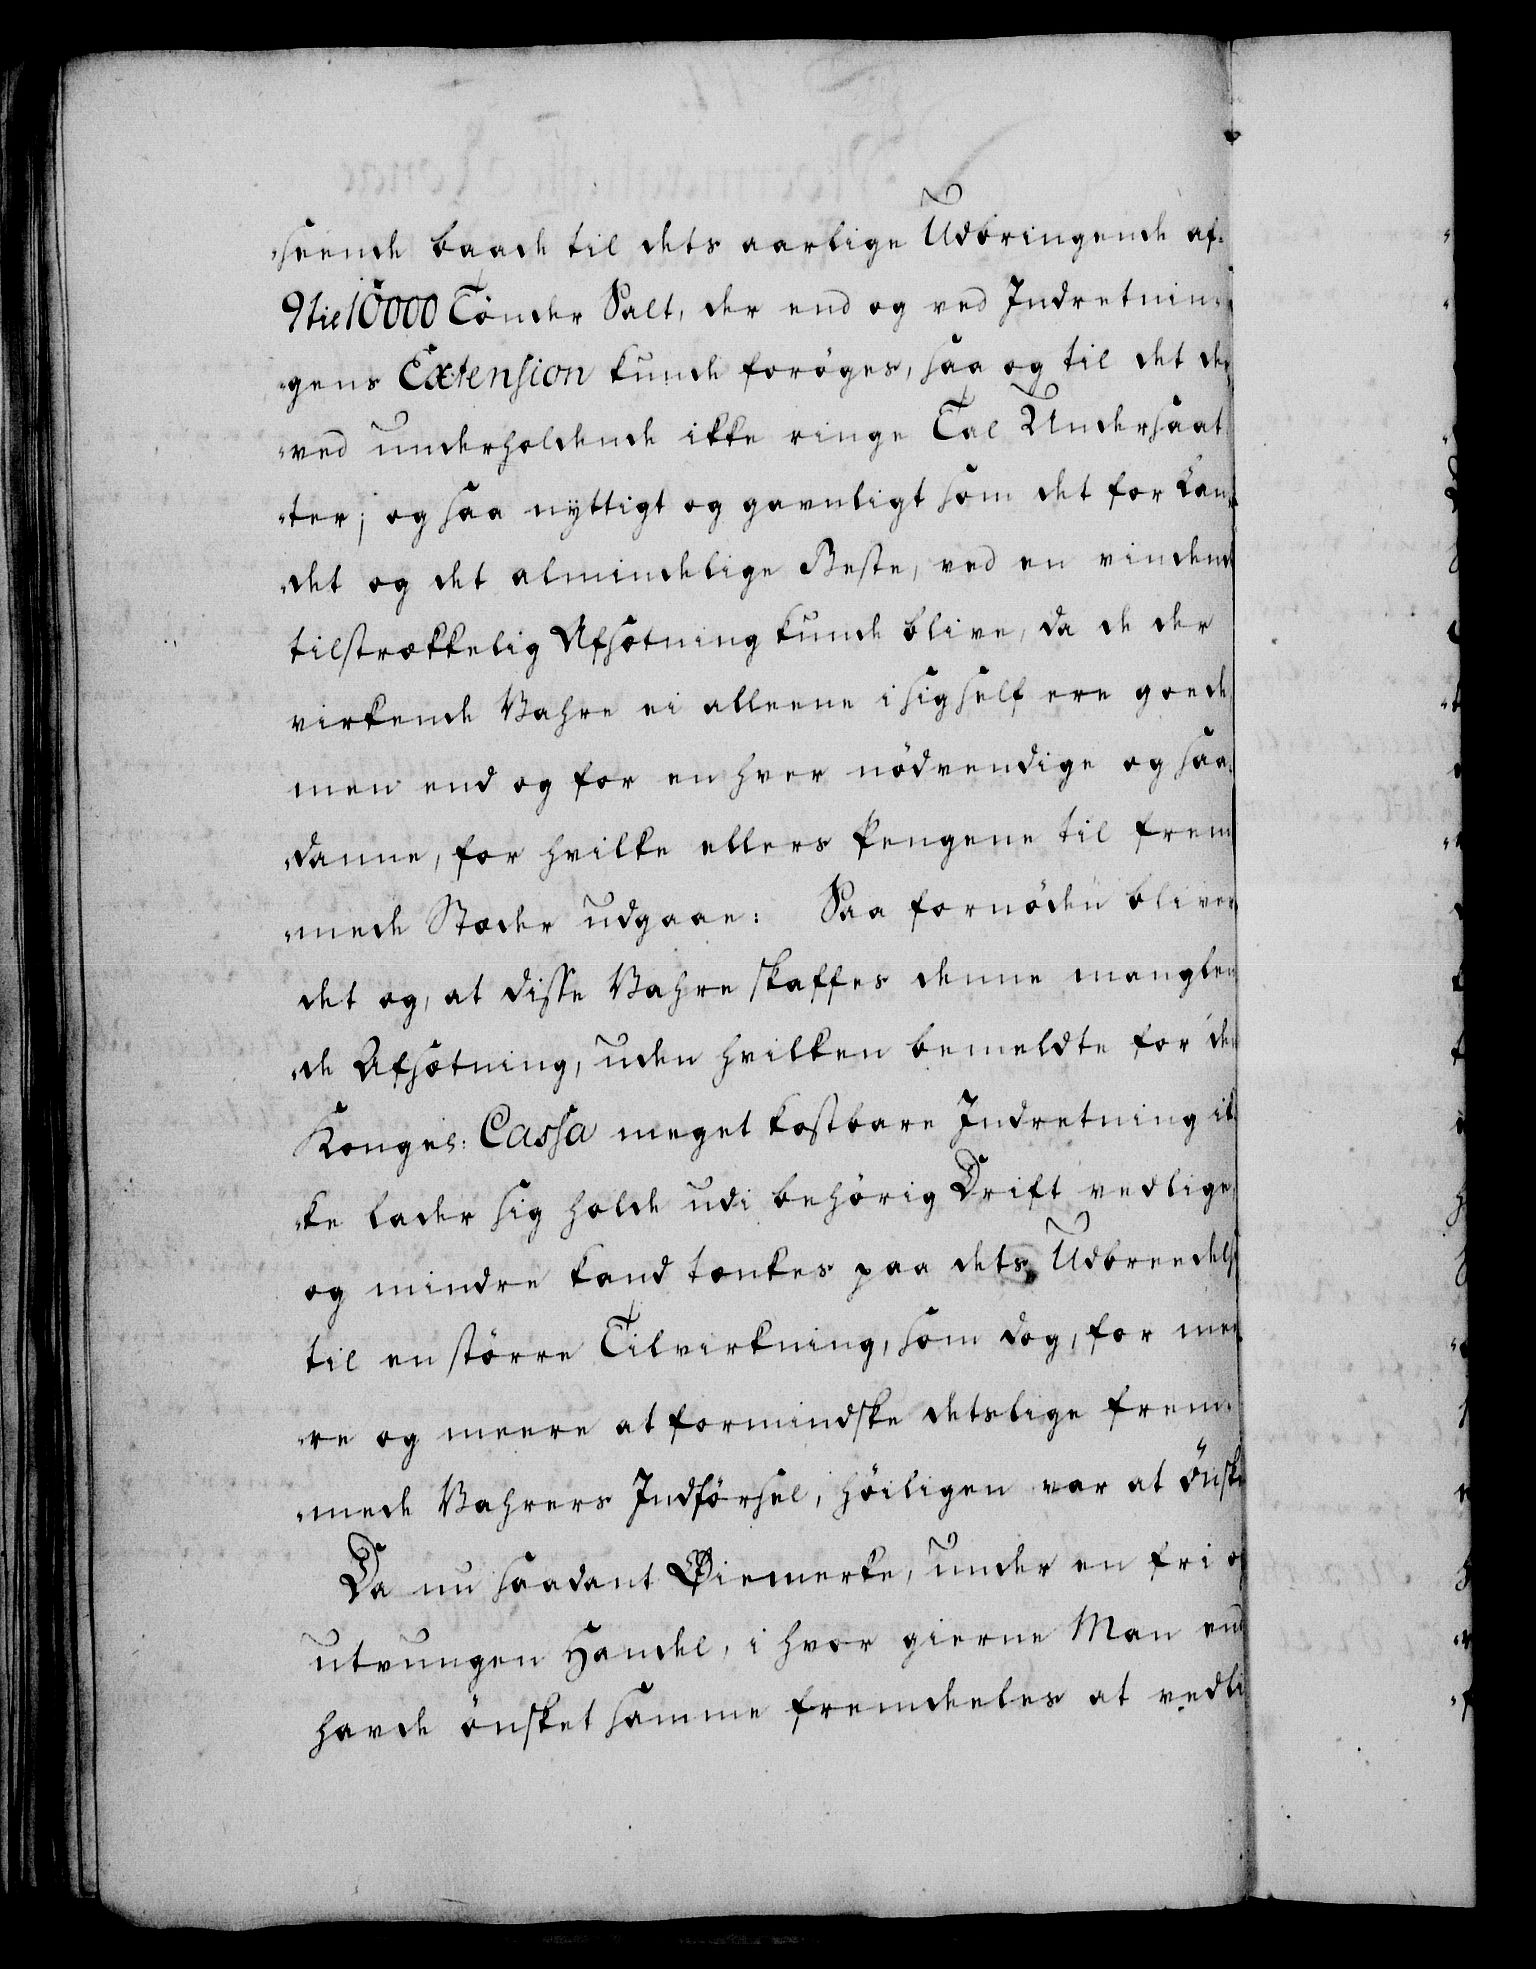 -seende baade til dets aarlige Udbringende af
9 til 10000 Tønder Salt, der end og ved Indretnin-
-gens Extension kunde forøges, saa og til det der
-ved underholdende ikke ringe Tal Undersaat
-ter; og saa nyttigt og gavnligt som det for Lan-
-det og det almindelige Beste, ved en vindende
tilstrækkelig Afsætning kunde blive, da de der
virkende Vahre ei alleene i sig self ere goede
men end og for en hver nødvendige og saa-
-danne, for hvilke ellers Pengene til frem
-mede Stæder udgaae: Saa fornöden bliver
det og, at disse Vahre skaffes denne manglen
-de Afsætning, uden hvilken bemeldte for den
Kongel: Cassa meget kostbare Indretning ik
-ke lader sig holde udi behörig Drift vedlige,
og mindre kand tænkes paa dets Udbreedelse
til en större Tilvirkning, som dog, for mee
-re og meere at formindske detslige frem-
-mede Vahrers Indförsel, höiligen var at önske
Da nu saadant Øiemerke, under en fri og
utvungen Handel, i hvor gierne Man end
havde önsket samme fremdeeles at vedli